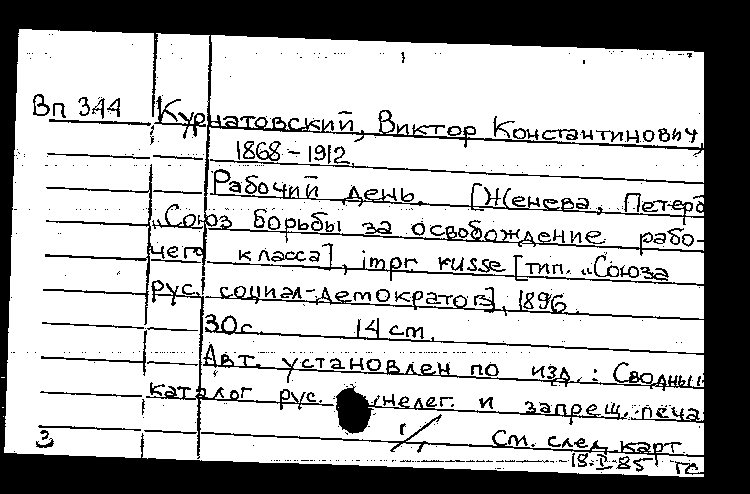 Вп 344 Курнатовский, Виктор Константинович,
1868-1912.
Рабочий день. [Женева, Петерб
„Союз борьбы за освобождение рабо-
чего класса], impr. russe [тип. „Союза
рус. социал-демократов], 1896.
30с. 14 cm.
Авт. установлен по изд.: Сводный
каталог рус. нелег. и запрещ. печа
3 См. след. карт
18.I-85 ТС